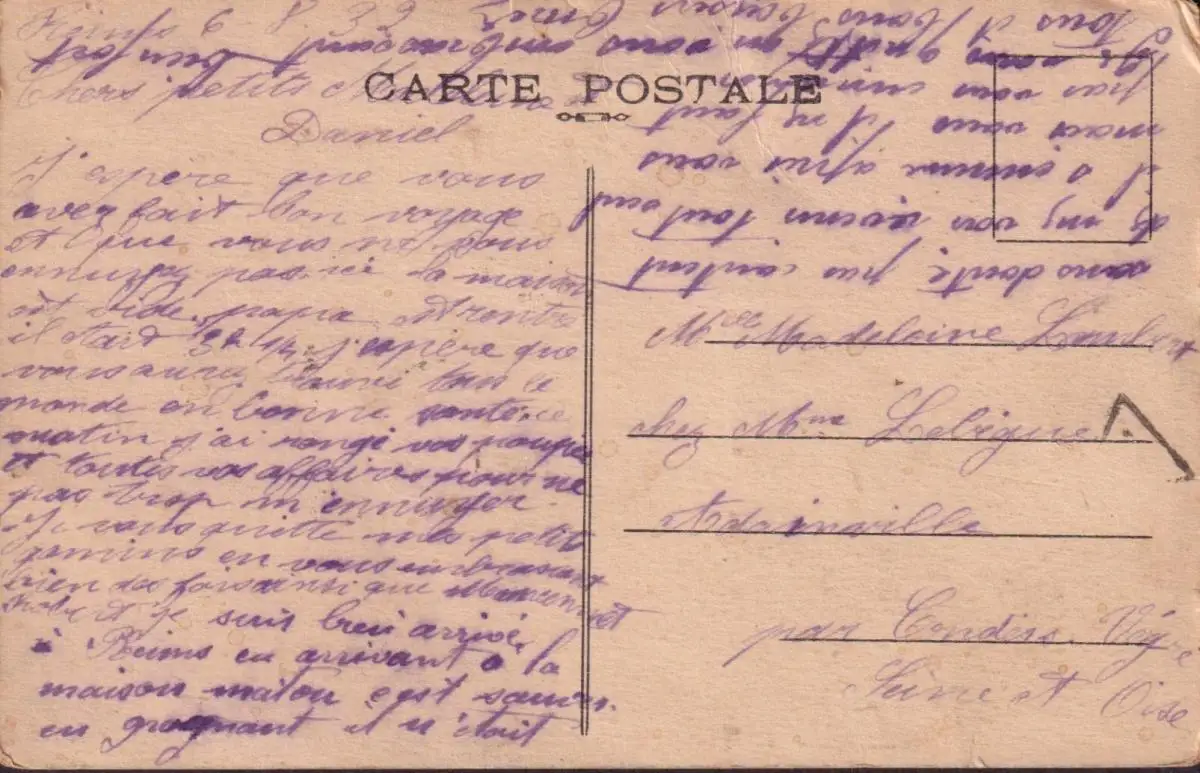 Reims 6-8-32
Chers petits
Daniel
CARTE POSTALE
J'espère que vous
avez fait bon voyage
et que vous ne vous
ennuyez pas ici la maison
est vide, papa est rentré
il était j'espère que
vous aurez trouvé tous le
monde en bonne santé ce
matin j'ai rangé vos poupées
et toutes vos affaires pour ne
pas trop m'ennuyer.
Je vous quitte mes petits
gamins en vous embrassant
bien des fois ainsi que
et je suis bien arrivé
à Reims en arrivant à la
maison matou c'est sauvé
en grognant il n'était
sans doute pas content
de m'y voir revenir tout seul
il s'ennuie après vous
mais vous il ne faut
pas vous ennuyer
Je vous quitte en vous embrassant bien fort
Tous et
Mlle Madelaine Lambert
chez Mme Lebègue
Adainville
par Condé s. Vègre
Seine et Oise